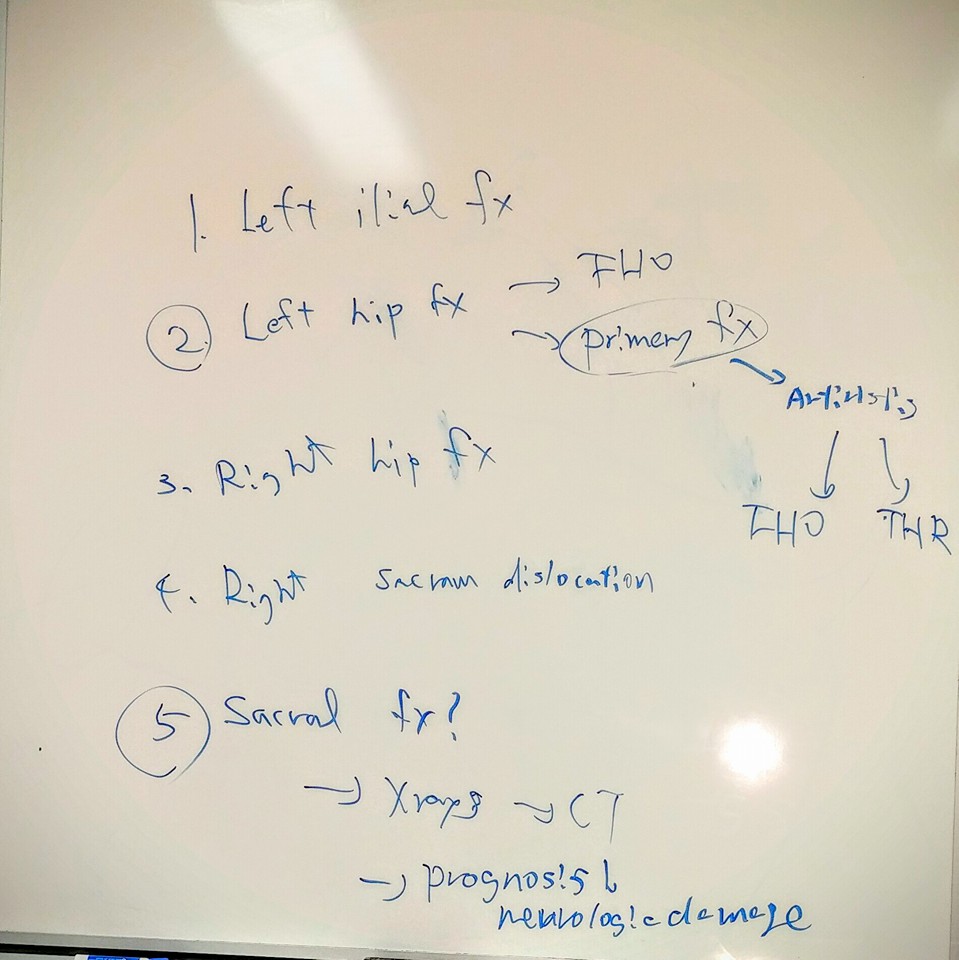 1. Left ilial fx
2. Left hip fx → FHO
→ primary fx
Arthritis
FHO THR
3. Right hip fx
4. Right sacrum dislocation
5 Sacral fx?
→ Xrays → CT
→ prognosis
neurologic damage